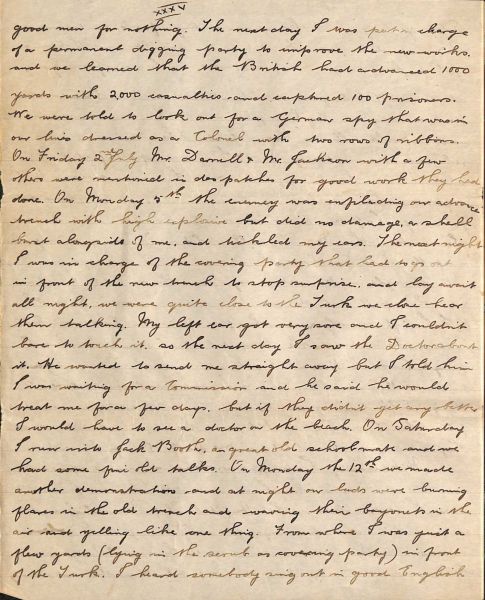 XXXV
good men for nothing. The next day I was put in charge
of a permanent digging party to improve the new works,
and we learned that the British had advanced 1000
yards with 2,000 casualties and captured 100 prisoners.
We were told to look out for a German spy that was in
our lines dressed as a Colonel with two rows of ribbons.
On Friday 2nd July Mr. Darnell & Mr. Jackson with a few
others were mentioned in despatches for good work they had
done. On Monday 5th the enemy was enfilading our advance
trench with high explosive but did no damage, a shell
burst alongside of me, and tickled my ears. The next night
I was in charge of the covering party that had to go out
in front of the new trench to stop surprise, and lay await
all night, we were quite close to the Turk we close hear
them talking. My left ear got very sore and I couldn't
bare to touch it, so the next day I saw the Doctor about
it. He wanted to send me straight away but I told him
I was waiting for a Commission and he said he would
treat me for a few days, but if they didn't get any better
I would have to see a doctor on the beach. On Saturday
I run into Jack Booth, an great old schoolmate and we
had some fine old talks. On Monday the 12th we made
another demonstration and at night our lads were burning
flares in the old trench and waving their bayonets in the
air and yelling like one thing. From where I was just a
few yards (lying in the scrub as covering party) in front
of the Turk. I heard somebody sing out in good English